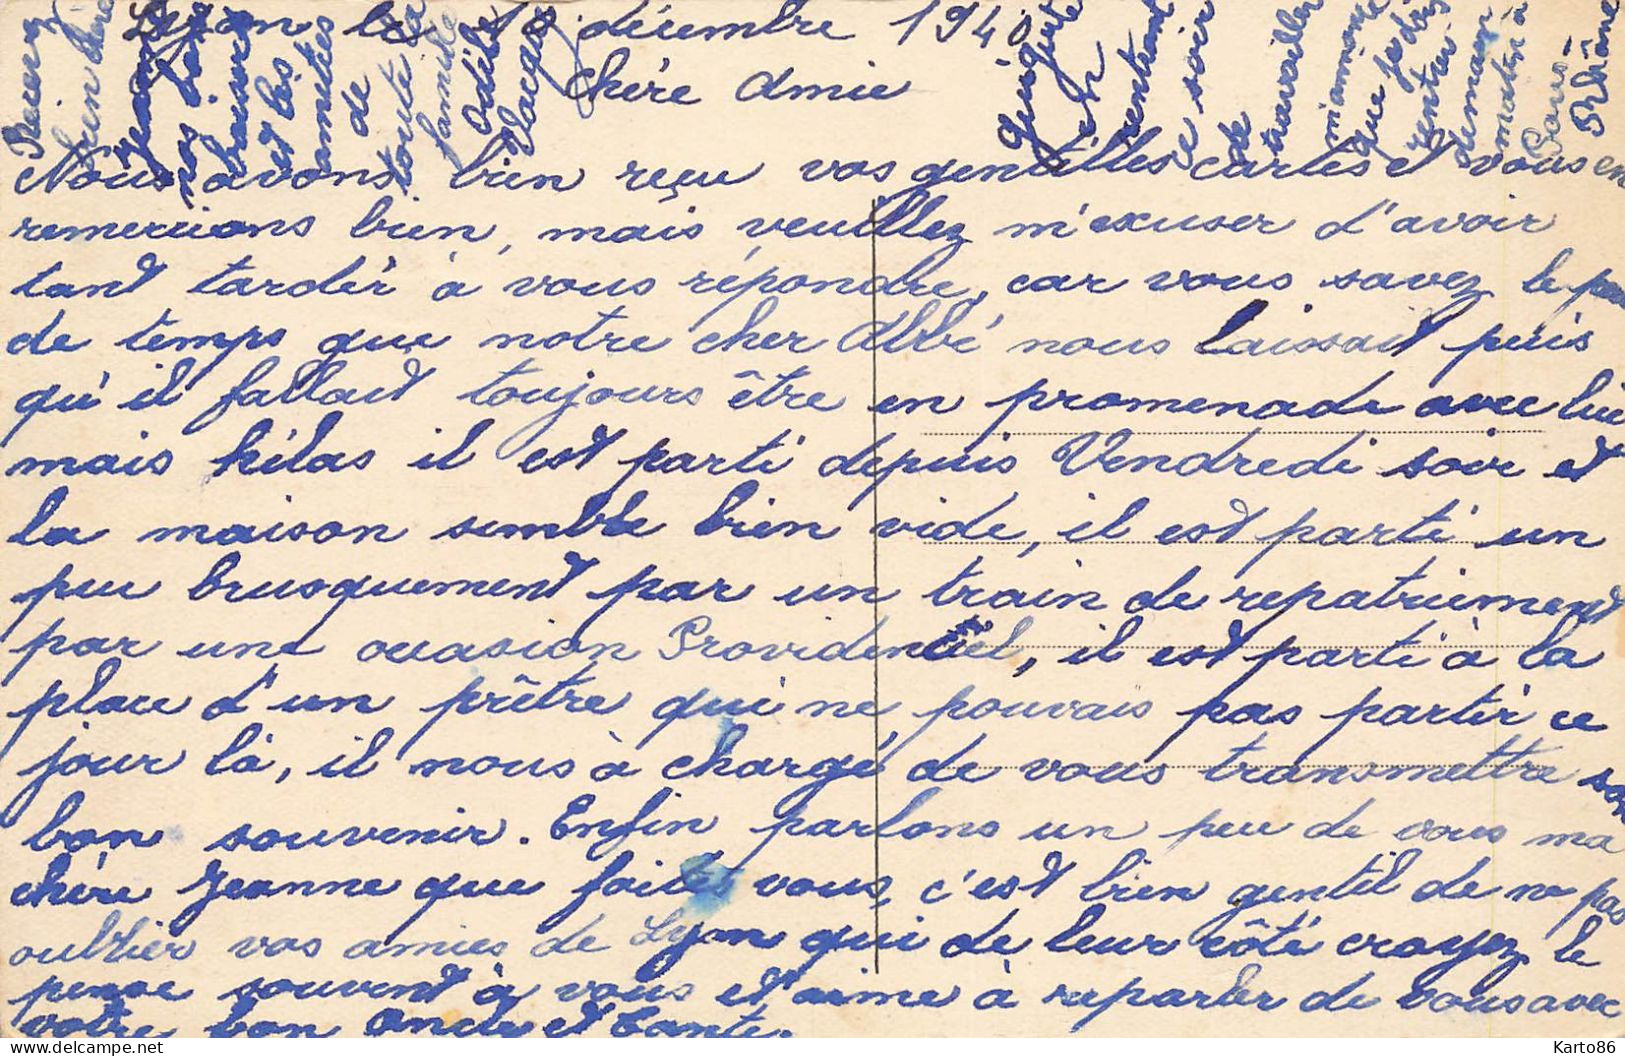 Lyon le 10 décembre 1940
chère Amie
Nous avons bien reçu vos gentilles cartes et vous en
remercions bien, mais veuillez m'excuser d'avoir
tant tardér à vous répondre, car vous savez le peu
de temps que notre cher Abbé nous laissait puis
qu'il fallait toujours être en promenade avec lui
mais hélas il est parti depuis Vendredi soir et
la maison semble bien vide, il est parti un
peu brusquement par un train de repatriement
par une occasion Providentiel, il est parti à la
place d'un prêtre qui ne pouvais pas partir ce
jour là, il nous à chargé de vous transmettre son
bon souvenir. Enfin parlons un peu de vous ma
chère Jeanne que faites vous, c'est bien gentil de ne pas
oublier vos amies de Lyon qui de leur côté croyez le
pense souvent à vous et aime à reparler de vous avec
votre bon Oncle et Tante.
Recevez
bien chère
Jeanne
nos bons
baisers
et les
amitiés
de
toute la
famille
Odile
Jacques
en
rentrant
ce soir
de
travailler
m'annonce
que je dois
rentrer
demain
matin à
Rhône
Karto86